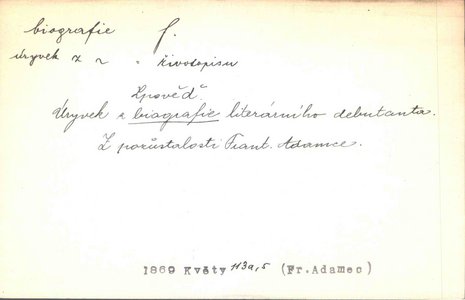 biografie f.
úryvek z ~ = životopisu
Zpověď.
Úryvek z biografie literárního debutanta.
Z pozůstalosti Frant. Adamce.
1869 Květy 113a,5 (Fr.Adamec)